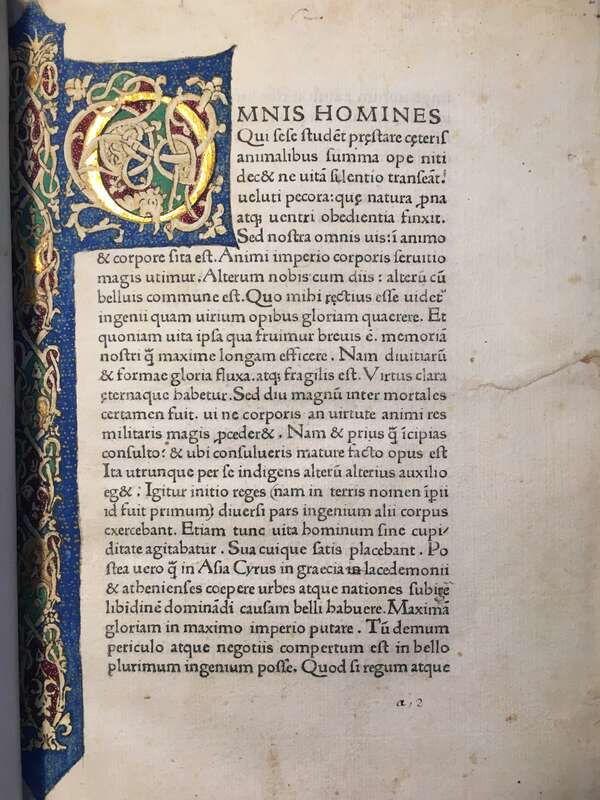 OMNIS HOMINES
Qui sese studēt pręstare cęteris
animalibus summa ope niti
dec& ne uitā silentio transeāt.
ueluti pecora: quę natura ꝓna
atqꝫ uentri obedientia finxit.
Sed nostra omnis uis: ī animo
& corpore sita est. Animi imperio corporis seruitio
magis utimur. Alterum nobis cum diis: alterū cū
belluis commune est. Quo mihi ręctius esse uidet᷑
ingenii quam uirium opibus gloriam quaerere. Et
quoniam uita ipsa qua fruimur breuis ē. memoriā
nostri q̄ maxime longam efficere. Nam diuitiarū
& formae gloria fluxa. atqꝫ fragilis est. Virtus clara
ęternaque habetur. Sed diu magnū inter mortales
certamen fuit. ui ne corporis an uirtute animi res
militaris magis ꝓceder&. Nam & prius q̄ īcipias
consulto: & ubi consulueris mature facto opus est
Ita utrunque per se indigens alterū alterius auxilio
eg&. Igitur initio reges (nam in terris nomen īpii
id fuit primum) diuersi pars ingenium alii corpus
exercebant. Etiam tunc uita hominum sine cupi/
ditate agitabatur. Sua cuique satis placebant. Po
stea uero q̄ in Asia Cyrus in graecia in lacedemonii
& athenienses coepere urbes atque nationes subigē
libidinē domināđi causam belli habuere. Maximā
gloriam in maximo imperio putare. Tū demum
periculo atque negotiis compertum est in bello
plurimum ingenium posse. Quod si regum atque
a, 2